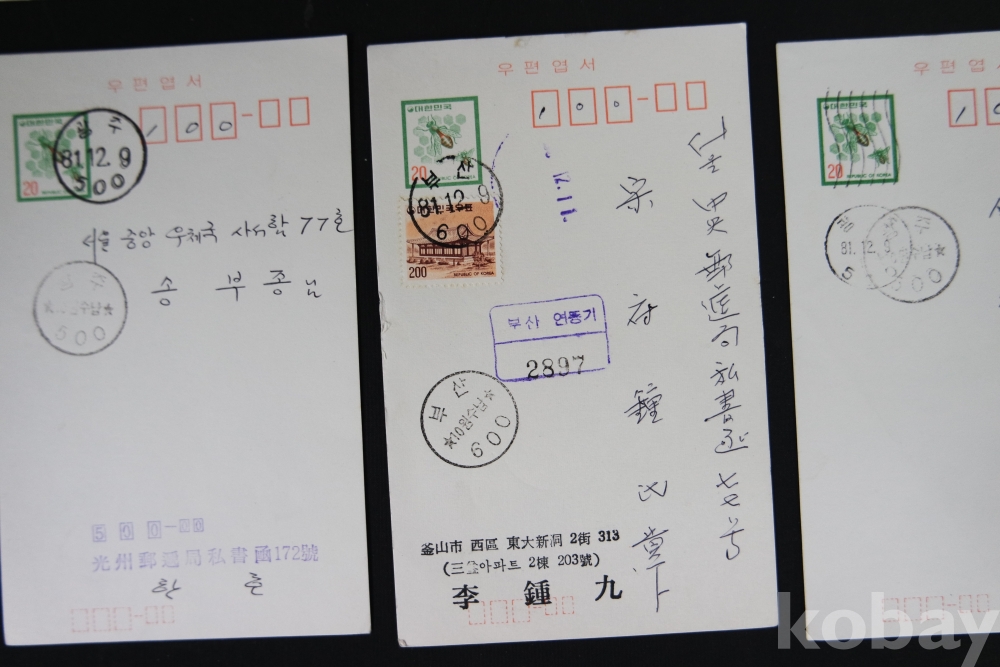 우편엽서
대한민국
20
광주
81.12.9
500
100-
서울 중앙 우체국 사서함 77호
송 부종님
500
500-
光州郵遞局私書函172號
우편엽서
대한민국
20
REPUBLIC OF KOREA
부산
81.12.9
600
대한민국우표
200
REPUBLIC OF KOREA
100-
부산 연동기
2897
부산
600
郵遞局私書函七七号
宋府鐘
釜山市 西區 東大新洞 2街 313
아파트 2棟 203號)
李鍾九
우편엽
20
REPUBLIC OF KOREA
81.12.9
kobay